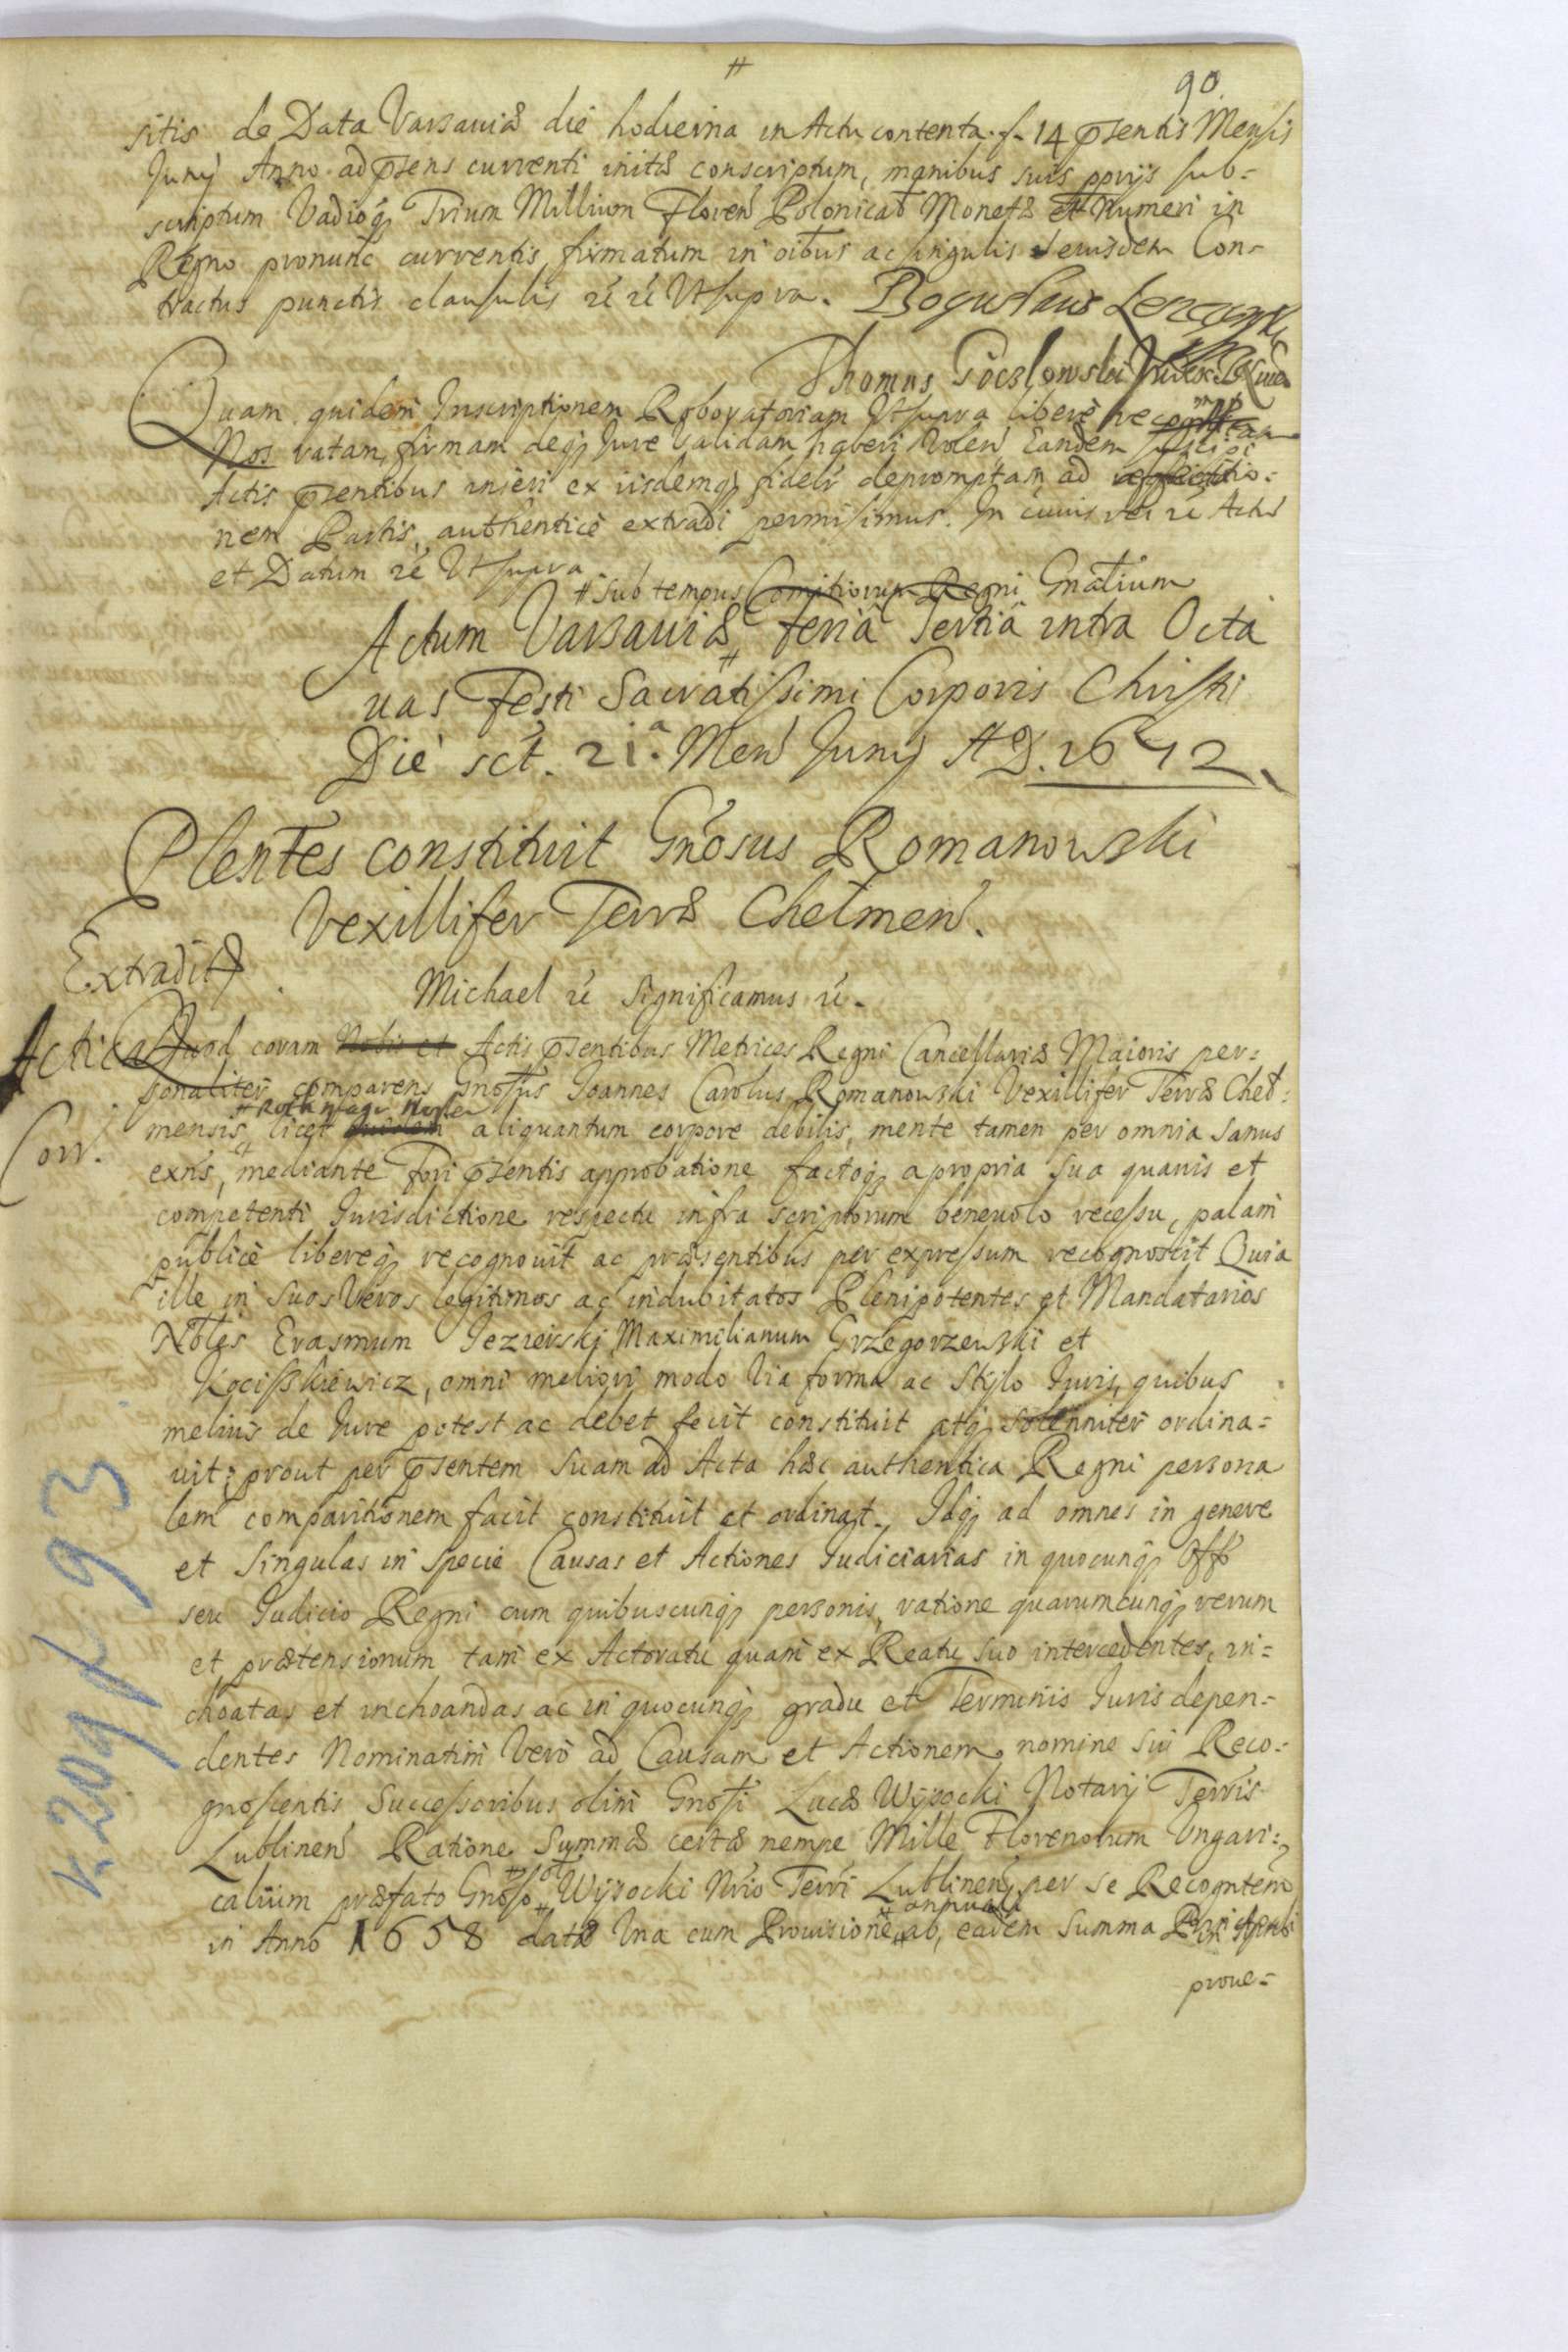 #
90
sitis de Data Varsauiæ die hodierna in Actu contenta. s. 14 p̄sentis Mensis
Junij Anno ad p̄sens currenti initæ conscriptum, manibus suis pprijs sub=
scriptum Vadioq; Trium Millium Floren Polonical Monetæ et Numeri in
Regno pronunc currentis firmatum in oibus ac singulis eiusdem Con=
tractus punctis clausulis rć rć Vtsupra. Boguslaus
Thomas
Quam quidem Inscriptionem Roboratoriam Vtsupra liberè
Nos ratam, firmam deq; Jure Validam haberi Volen Eandem suscipi
Actis p̄sentibus inseri ex iisdemq; fidelr depromptam ad
nem Partis, authenticè extradi permisimus. In cuius rei rć Actū
et Datum rć Vtsupra
# sub tempus Comitiorum Regni Gnalium
Actum Varsauiæ # Feria Tertia intra Octa
uas Festi Sacratissimi Corporis Christi
Die sct. 21.a Men Junij A D. 1672
Plentes constituit Gnosus Romanowski
Vexillifer Terræ Chelmen.
Extradita
Michael rć significamus rć.
Actica Quod coram Nobis et Actis p̄sentibus Metrices Regni Cancellariæ Maioris per=
sonaliter comparens Gnosus Joannes Carolus Romanowski Vexillifer Terræ Chel=
mensis, licet aliquantum corpore debilis, mente tamen per omnia sanus
Corr.
exns, mediante Fori p̄sentis approbatione factoq; a propria sua quauis et
competenti Jurisdictione respectu infra scriptorum beneuolo recessu, palam
publicè libereq; recognouit ac præsentibus per expressum recognoscit Quia
ille in suos Veros legitimos ac indubitatos Plenipotentes et Mandatarios
Nobles Erasmum Jezierski Maximilianum Grzegorzewski et
Kocisskiewicz, omni meliori modo Via forma ac Stylo Juris, quibus
melius de Jure potest ac debet fecit constituit atq; solenniter ordina=
uit; prout per p̄sentem suam ad Acta hæc authentica Regni persona
lem comparitionem facit constituit et ordinat. Idq; ad omnes in genere
et singulas in specie Causas et Actiones Judiciarias in quocunq; Offo
seu Judicio Regni cum quibuscunq; personis, ratione quarumcunq; rerum
et prætensionum tam ex Actoratu quam ex Reatu suo intercedentes, in=
choatas et inchoandas ac in quocunq; gradu et Terminis Juris depen=
dentes Nominatim Vero ad Causam et Actionem nomine sui Reco=
gnoscentis Successoribus olim Gnosi Lucæ Wysocki Notarij Terris
Lublinen Ratione Summæ certæ nempe Mille Florenorum Vngari=
calium præfato Gnoso # Wysocki Nrio Terri Lublinen, per se Recogntem
# annuali
in Anno 1658 datæ Vna cum Prouisione # ab eadem Summa
proue=
k 209 / k 93